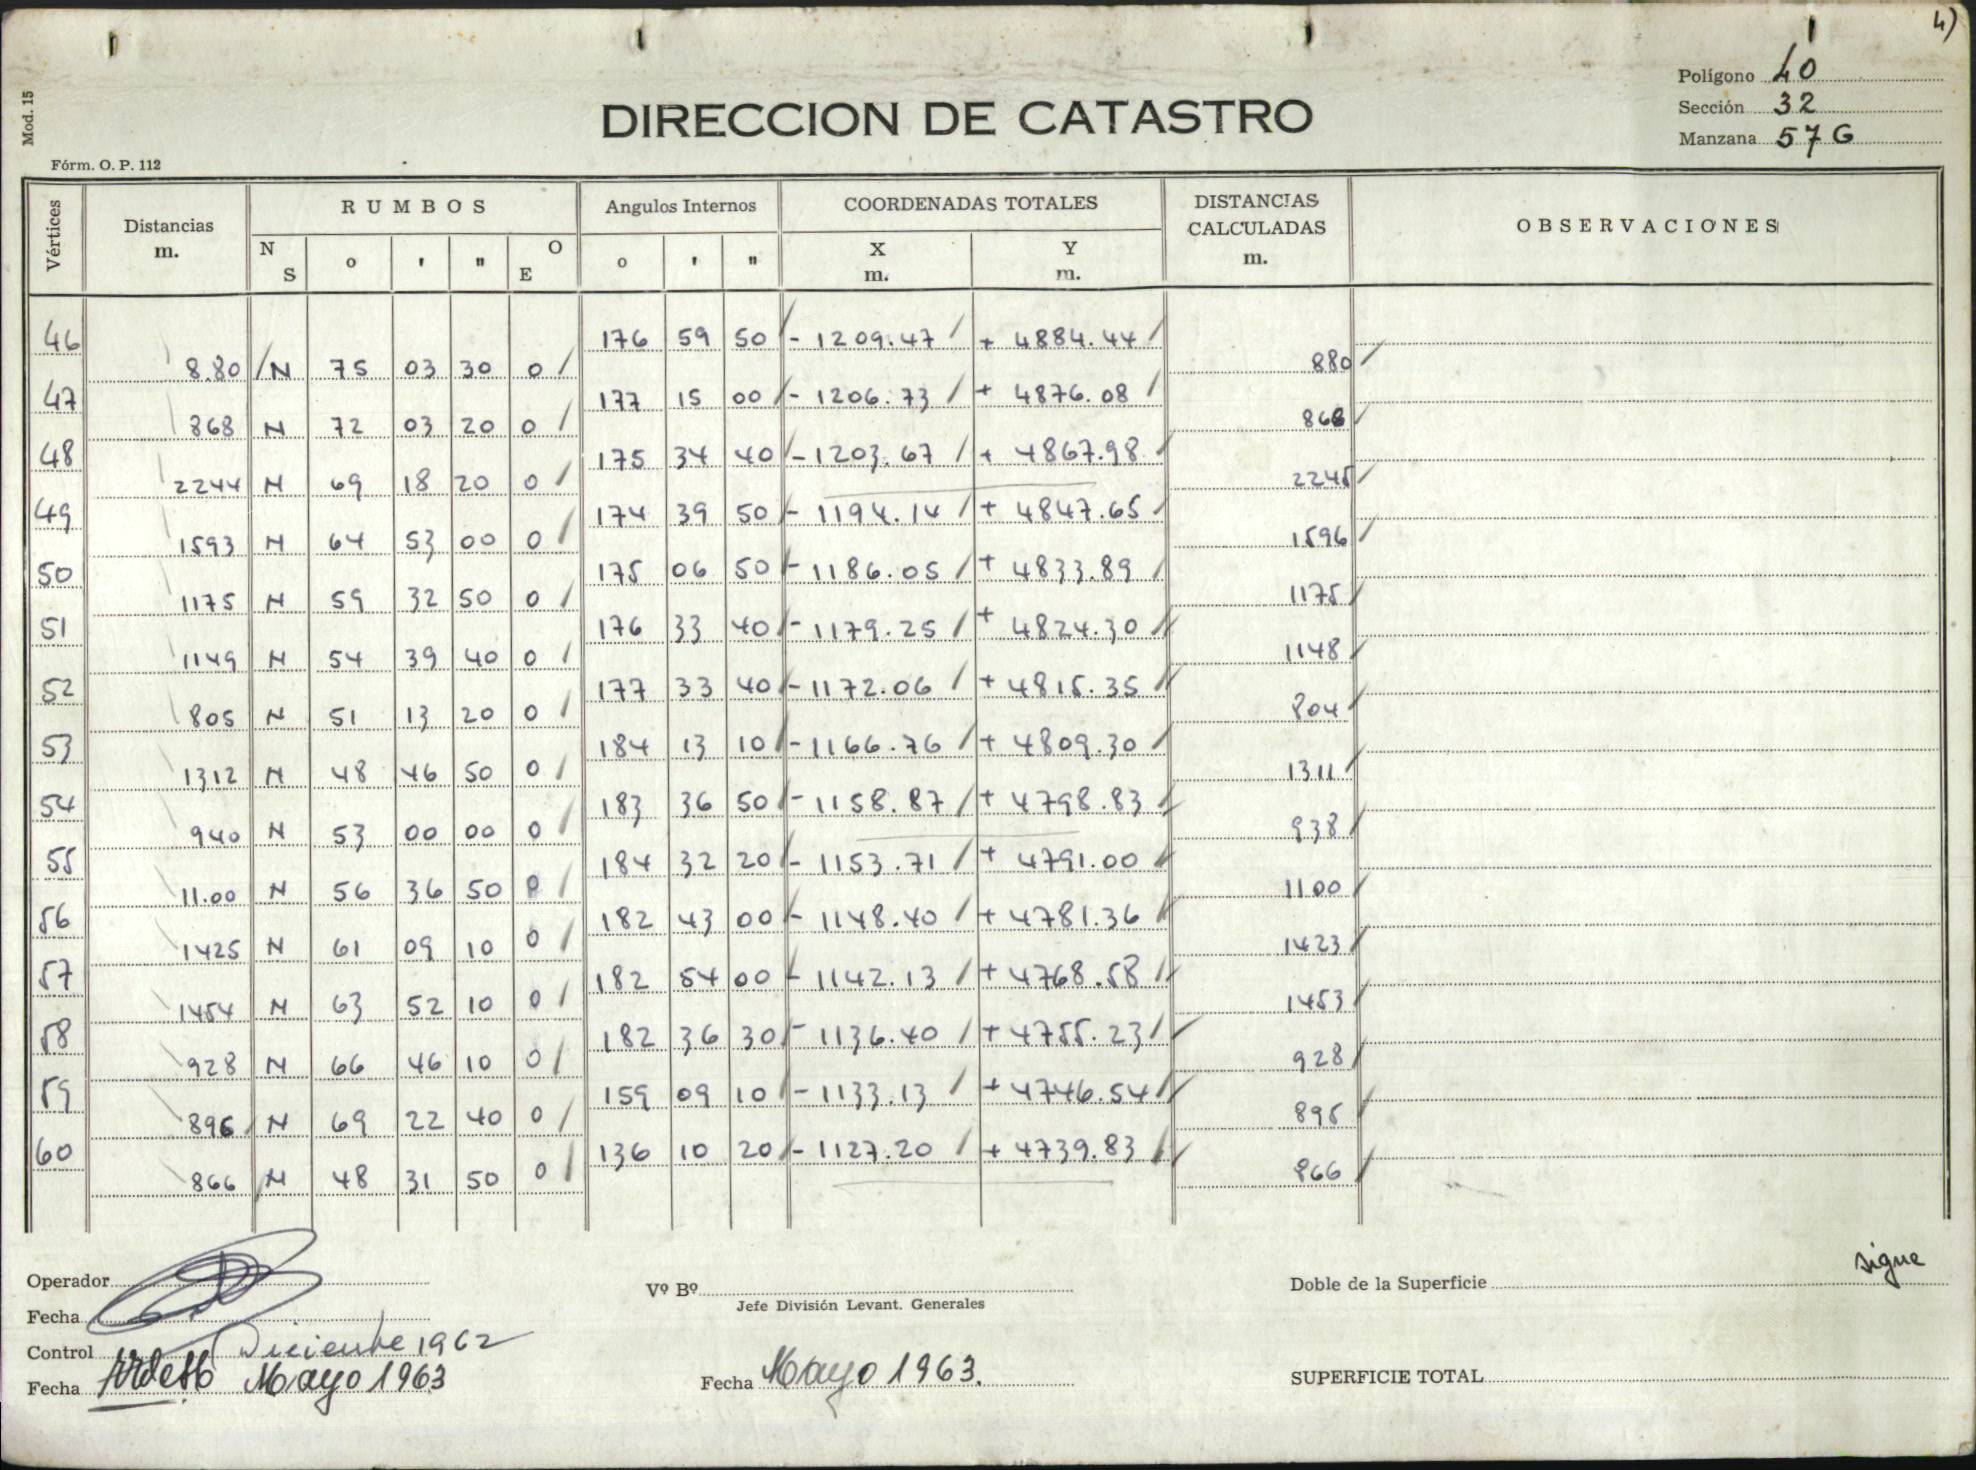 4)
Polígono 40
Mod. 15
Sección 32
DIRECCION DE CATASTRO
Manzana 57 G
Fórm. O. P. 112
Vértices Distancias m. RUMBOS N S o ' " O E Angulos Internos o ' " COORDENADAS TOTALES X m. Y m. DISTANCIAS CALCULADAS m. OBSERVACIONES
46 176 59 50 - 1209.47 + 4884.44
8.80 N 75 03 30 0 880
47 177 15 00 - 1206.73 + 4876.08
868 N 72 03 20 0 868
48 175 34 40 - 1203.67 + 4867.98
2244 N 69 18 20 0 2245
49 174 39 50 - 1194.14 + 4847.65
1593 N 64 53 00 0 1596
50 175 06 50 - 1186.05 + 4833.89
1175 N 59 32 50 0 1175
51 176 33 40 - 1179.25 + 4824.30
1149 N 54 39 40 0 1148
52 177 33 40 - 1172.06 + 4815.35
805 N 51 13 20 0 804
53 184 13 10 - 1166.76 + 4809.30
1312 N 48 46 50 0 1311
54 183 36 50 - 1158.87 + 4798.83
940 N 53 00 00 0 938
55 184 32 20 - 1153.71 + 4791.00
11.00 N 56 36 50 0 1100
56 182 43 00 - 1148.40 + 4781.36
1425 N 61 09 10 0 1423
57 182 54 00 - 1142.13 + 4768.58
1454 N 63 52 10 0 1453
58 182 36 30 - 1136.40 + 4755.23
928 N 66 46 10 0 928
59 159 09 10 - 1133.13 + 4746.54
896 N 69 22 40 0 895
60 136 10 20 - 1127.20 + 4739.83
866 N 48 31 50 0 866
sigue
Operador
Vº Bº
Doble de la Superficie
Jefe División Levant. Generales
Fecha Diciembre 1962
Control
Fecha Mayo 1963
Fecha Mayo 1963.
SUPERFICIE TOTAL